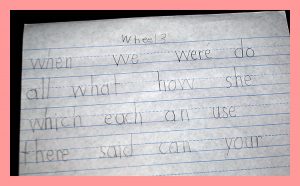 Wheel 3
when we were do
all what how she
which each an use
there said can your